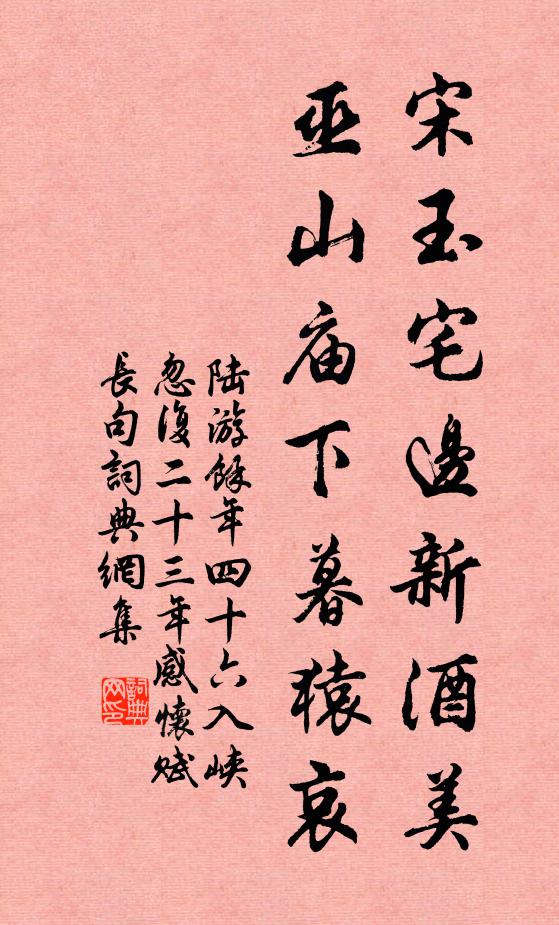 宋玉宅邊新酒美
巫山庙下暮猿哀
陆游餘年四十六入峡
忽復二十三年感懷赋
長句詞典網集
詞典网印